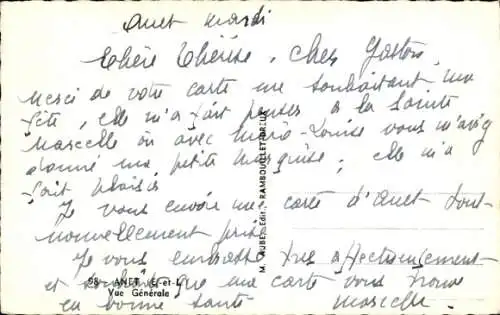 Anet mardi
Chère Thérèse, Cher Gaston
Merci de votre carte me souhaitant ma
fête, elle m'a fait penser à la Sainte
Marcelle où avec Marie-Louise vous m'avez
donné ma petite marquise, elle m'a
fait plaisir
Je vous envoie une carte d'Anet tout
nouvellement prise
Je vous embrasse très affectueusement
et souhaite que ma carte vous trouve
en bonne santé Marcelle
98 - ANET (E.-et-L.)
Vue Générale
RAMBOUILLET-DREUX